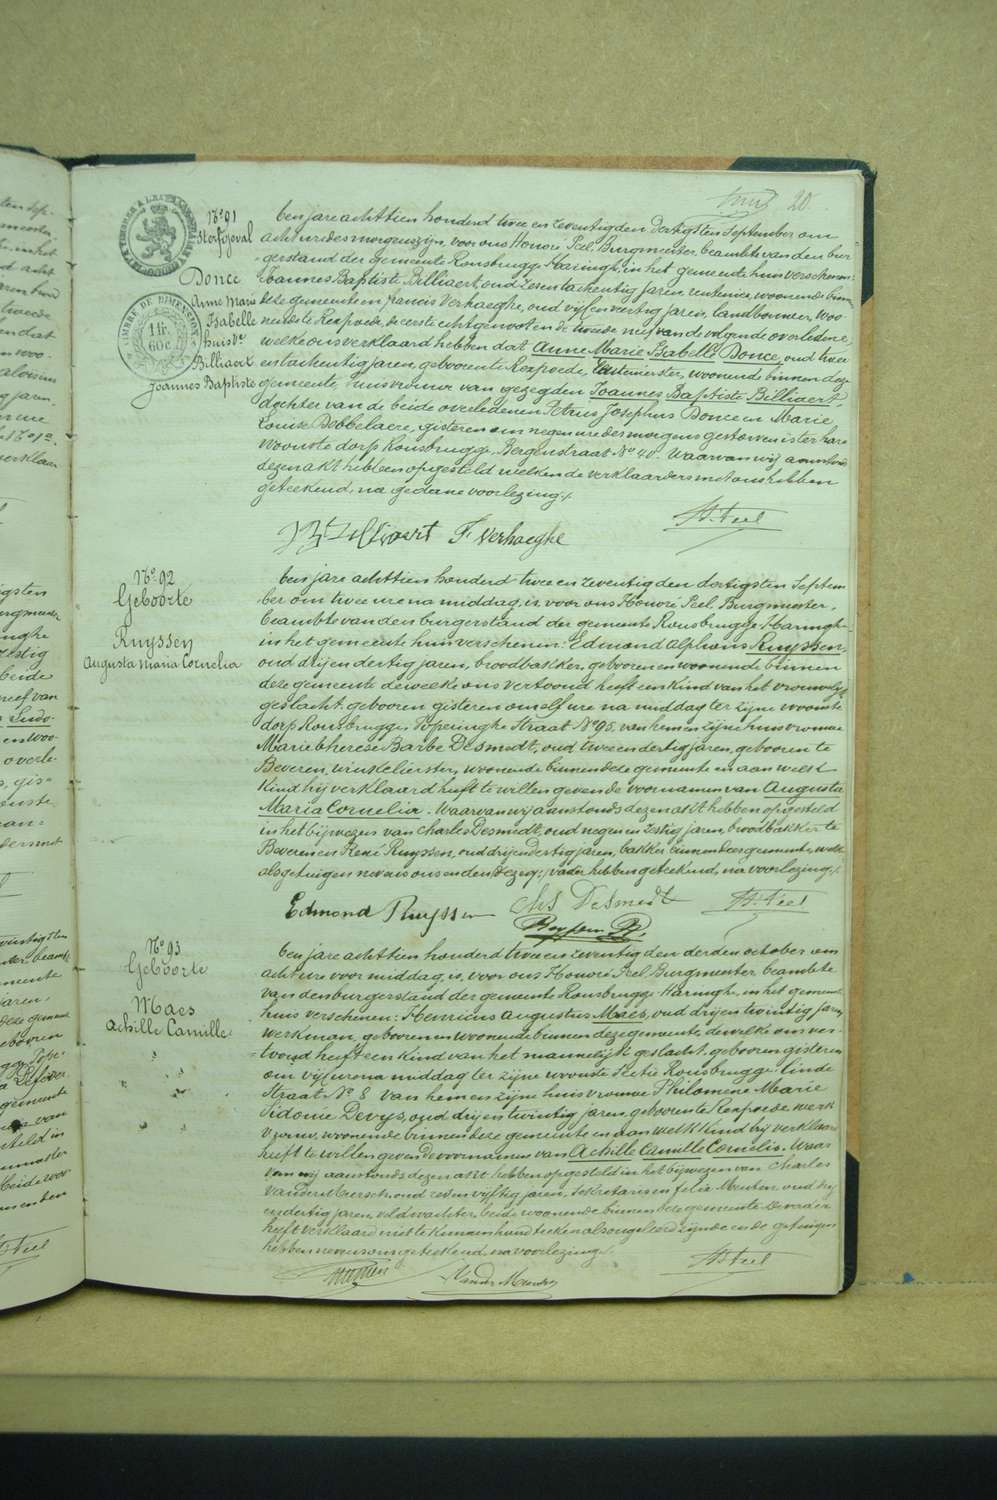 20
No 91
Sterfgeval
Donce
Anne Marie
Isabelle
huisve
Billiaert
Joannes Baptiste
TIMBRE DE DIMENSION
1 fr.
60 c.
Een jare achttien honderd twee en zeventig den dertigsten September om
acht ure des morgens zijn, voor ons Honoré Peel Burgmeester, beambte van den bur
gerstand der gemeente Rousbrugge-Haringhe, in het gemeente huis verschenen:
Joannes Baptiste Billiaert, oud zes en tachentig jaren, rentenier, woonende binn
deze gemeente en Francis Verhaeghe, oud vijf en veertig jaren, landbouwer, woo
nende te Rexpoede, de eerste echtgenoot en de tweede neef van de volgende overledene,
welke ons verklaard hebben dat Anne Marie Isabelle Donce, oud twee
en tachentig jaren, geboren te Rexpoede, rentenierster, woonende binnen deze
gemeente, huisvrouw van gezegden Joannes Baptiste Billiaert,
dochter van de beide overledenen Petrus Josephus Donce en Marie
Louise Debbelaere, gisteren om negen ure des morgens gestorven is ter hare
woonste dorp Rousbrugge, Bergenstraat No 40. Waarvan wij aanstonds
dezen akt hebben opgesteld welken de verklaarders met ons hebben
geteekend, na gedane voorlezing./.
JBte Billiaert F. Verhaeghe
H. Peel
No 92
Geboorte
Ruyssen
Augusta Maria Cornelia
Een jare achttien honderd twee en zeventig den dertigsten Septem
ber om twee ure na middag, is voor ons Honoré Peel, Burgmeester,
beambte van den burgerstand der gemeente Rousbrugge-Haringhe
in het gemeente huis verschenen: Edmond Alphons Ruyssen,
oud drij en dertig jaren, broodbakker, geboren en woonende binnen
deze gemeente dewelke ons vertoond heeft een kind van het vrouwelijk
geslacht, geboren gisteren om elf ure na middag ter zijne woonste
dorp Rousbrugge, Poperinghe Straat No 95, van hem en zijne huisvrouw
Marie Therese Barbe Desmedt, oud twee en dertig jaren, geboren te
Beveren, winkelierster, woonende binnen deze gemeente en aan welk
kind hij verklaard heeft te willen geven de voornamen van Augusta
Maria Cornelia. Waarvan wij aanstonds dezen akt hebben opgesteld
in het bijwezen van Charles Desmedt, oud negen en zestig jaren, broodbakker te
Beveren en René Ruyssen, oud drij en dertig jaren, bakker binnen deze gemeente, welke
als getuigen nevens ons en den gezeg: vader hebben geteekend, na voorlezing./.
Edmond Ruyssen Chs Desmedt H. Peel
Ruyssen R.
No 93
Geboorte
Maes
Achille Camille
Een jare achttien honderd twee en zeventig den derden october om
acht ure voor middag, is, voor ons Honoré Peel, Burgmeester beambte
van den burgerstand der gemeente Rousbrugge Haringhe, in het gemeente
huis verschenen: Henricus Augustus Maes, oud drij en twintig jaren,
werkman, geboren en woonende binnen deze gemeente, dewelke ons ver
toond heeft een kind van het mannelijk geslacht, geboren gisteren
om vijf ure na middag ter zijne woonste sectie Rousbrugge Linde
Straat No 8 van hem en zijne huisvrouw Philomene Marie
Sidonie Devys, oud drij en twintig jaren, geboren te Rexpoede, werk
vrouw, woonende binnen deze gemeente en aan welk kind hij verklaard
heeft te willen geven de voornamen van Achille Camille Cornelis. Waar
van wij aanstonds dezen akt hebben opgesteld in het bijwezen van Charles
Vandermeersch, oud zes en vijftig jaren, Sekretaris en Felix Meuten, oud drij
en dertig jaren, veldwachter, beide woonende binnen deze gemeente. De vader
heeft verklaard niet te kunnen handteekenen als ongeleerd zijnde en de getuigen
hebben nevens ons geteekend, na voorlezing./.
H. Peel